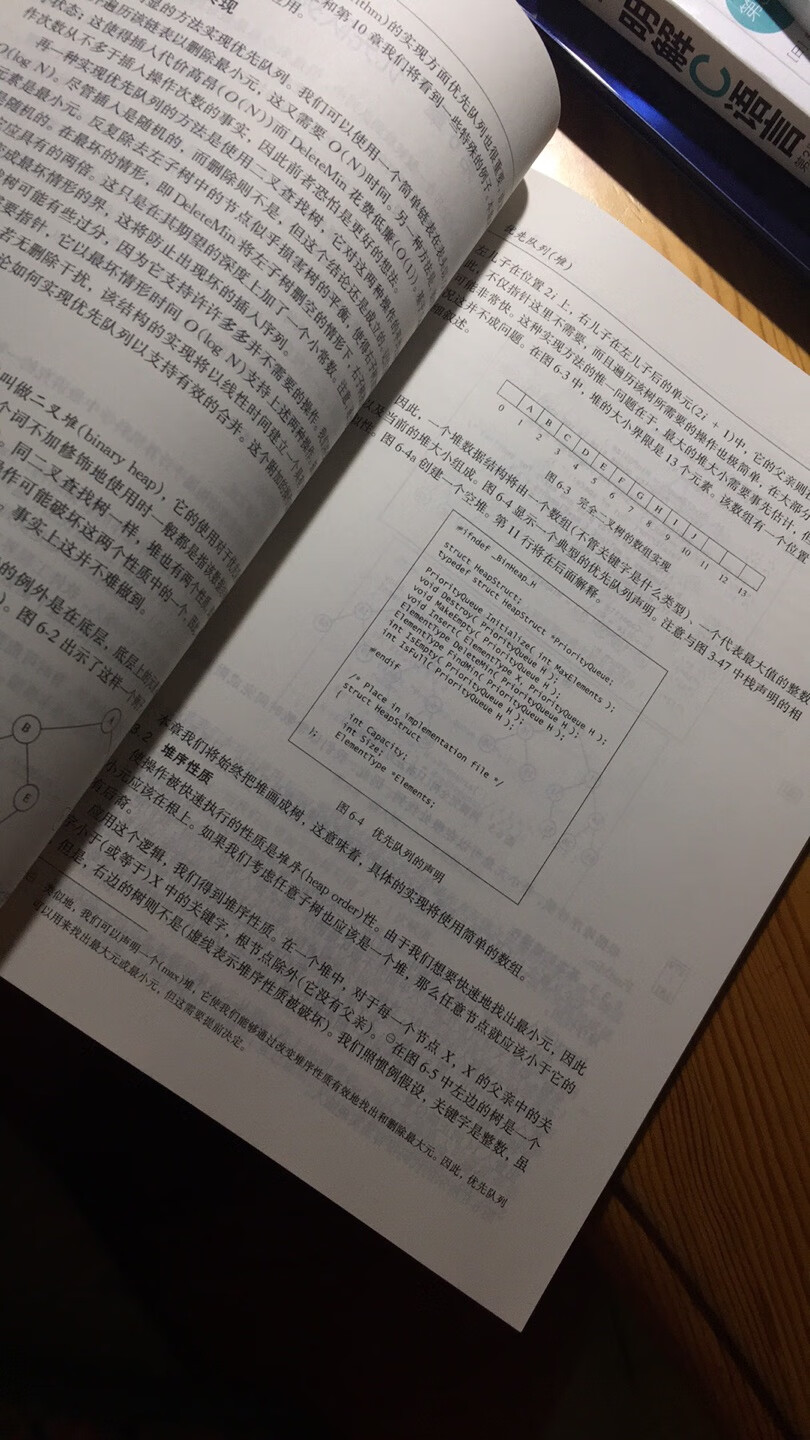 明解C语言
现
rithm)的实现方面优先队列也很重要
和第10章我们将看到一些特殊的例子
应用。
显的方法实现优先队列。我们可以使用一个简单链表在表
遍历该链表以删除最小元，这又需要 O(N)时间。另一种方法
状态；这使得插入代价高昂(O(N))而DeleteMin 花费低廉(O(1))。
作次数从不多于插入操作次数的事实，因此前者恐怕是更好的想法。
再一种实现优先队列的方法是使用二叉查找树，它对这两种操作的
O(log N)。尽管插入是随机的，而删除则不是，但这个结论还是成立的。
元素是最小元。反复除去左子树中的节点似乎损害树的平衡，使得右子
随机的。在最坏的情形，即 DeleteMin将左子树删空的情形下，右子
应具有的两倍。这只是在其期望的深度上加了一个小常数。注意
成最坏情形的界，这将防止出现坏的插入序列。
树可能有些过分，因为它支持许许多多并不需要的操作。
要指针，它以最坏情形时间 O(log N)支持上述两种操作
若无删除干扰，该结构的实现将以线性时间建立一个
论如何实现优先队列以支持有效的合并。这个附加的
叫做二叉堆(binary heap)，它的使用对于
个词不加修饰地使用时一般都是指该数据
同二叉查找树一样，堆也有两个性质
操作可能破坏这两个性质中的一个，
。事实上这并不难做到。
的例外是在底层，底层上的
)。图 6-2 出示了这样一个
B
E
优先队列(堆)
左儿子在位置 2i 上，右儿子在左儿子后的单元(2i + 1)中，它的父亲则
此，不仅指针这里不需要，而且遍历该树所需要的操作也极简单，在大部分
可能非常快。这种实现方法的惟一问题在于，最大的堆大小需要事先估计，但
况这并不成问题。在图 6-3 中，堆的大小界限是 13 个元素。该数组有一个位置
叙述。
A B C D E F G H I J
0 1 2 3 4 5 6 7 8 9 10 11 12 13
图 6-3 完全二叉树的数组实现
因此，一个堆数据结构将由一个数组(不管关键字是什么类型)、一个代表最大值的整数
以及当前的堆大小组成。图 6-4 显示一个典型的优先队列声明。注意与图 3-47 中栈声明的相
似性。图 6-4a 创建一个空堆。第 11 行将在后面解释。
#ifndef _BinHeap_H
struct HeapStruct;
typedef struct HeapStruct *PriorityQueue;
PriorityQueue Initialize( int MaxElements );
void Destroy( PriorityQueue H );
void MakeEmpty( PriorityQueue H );
void Insert( ElementType X, PriorityQueue H );
ElementType DeleteMin( PriorityQueue H );
ElementType FindMin( PriorityQueue H );
int IsEmpty( PriorityQueue H );
int IsFull( PriorityQueue H );
#endif
/* Place in implementation file */
struct HeapStruct
{
int Capacity;
int Size;
ElementType *Elements;
};
图 6-4 优先队列的声明
本章我们将始终把堆画成树，这意味着，具体的实现将使用简单的数组。
3.2 堆序性质
使操作被快速执行的性质是堆序(heap order)性。由于我们想要快速地找出最小元，因此
小元应该在根上。如果我们考虑任意子树也应该是一个堆，那么任意节点就应该小于它的
有后裔。
应用这个逻辑，我们得到堆序性质。在一个堆中，对于每一个节点 X，X 的父亲中的关
字小于(或等于)X 中的关键字，根节点除外(它没有父亲)。⊖在图 6-5 中左边的树是一个
，但是，右边的树则不是(虚线表示堆序性质被破坏)。我们照惯例假设，关键字是整数，虽
类似地，我们可以声明一个(max)堆，它使我们能够通过改变堆序性质有效地找出和删除最大元。因此，优先队列
可以用来找出最大元或最小元，但这需要提前决定。